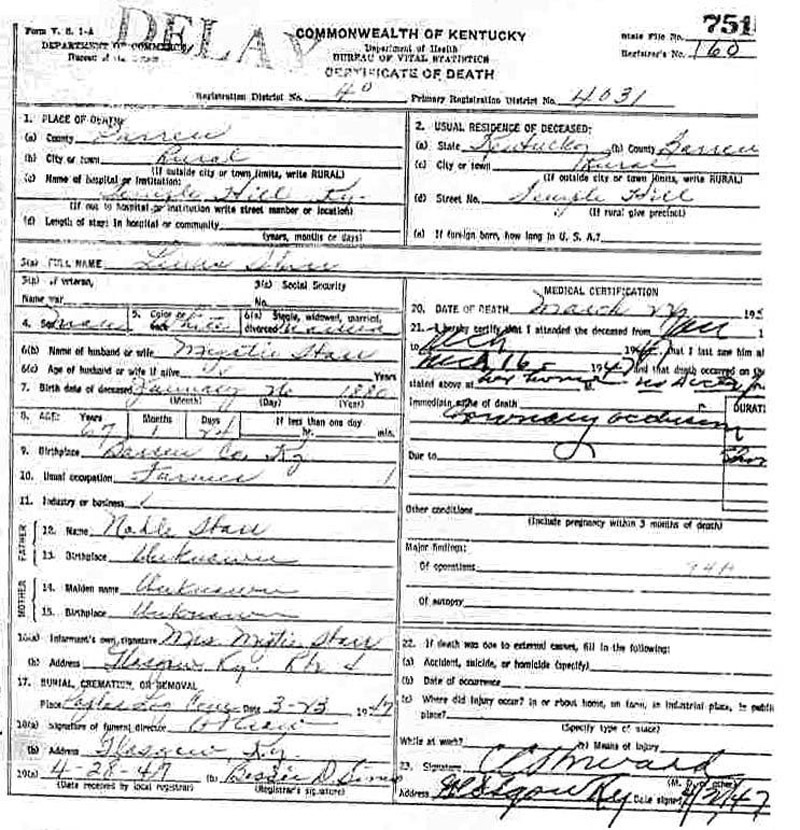 Form V. S. 1-A
DELAY
COMMONWEALTH OF KENTUCKY
State File No. 751
DEPARTMENT OF COMMERCE
Department of Health
Registrar's No. 160
Bureau of the Census
BUREAU OF VITAL STATISTICS
CERTIFICATE OF DEATH
Registration District No. 40 Primary Registration District No. 4031
1. PLACE OF DEATH:
(a) County Barren
(b) City or town Rural
(If outside city or town limits, write RURAL)
(c) Name of hospital or institution:
Temple Hill Ky.
(If not in hospital or institution write street number or location)
(d) Length of stay: in hospital or community
(years, months or days)
2. USUAL RESIDENCE OF DECEASED:
(a) State Kentucky (b) County Barren
(c) City or town Rural
(If outside city or town limits, write RURAL)
(d) Street No. Temple Hill
(If rural give precinct)
(e) If foreign born, how long in U. S. A.?
3(a) FULL NAME Starr
3(b) If veteran,
Name war
3(c) Social Security
No.
4. Sex Male 5. Color or race White 6(a) Single, widowed, married, divorced Married
6(b) Name of husband or wife Starr
6(c) Age of husband or wife if alive Years
7. Birth date of deceased January 1880
(Month) (Day) (Year)
8. AGE: Years Months Days If less than one day
67 1 24 hr. min.
9. Birthplace Barren Co. Ky
10. Usual occupation Farmer
11. Industry or business
FATHER
12. Name Noble Starr
13. Birthplace Unknown
MOTHER
14. Maiden name Unknown
15. Birthplace Unknown
16(a) Informant's own signature Mrs. Starr
(b) Address Glasgow Ky.
17. BURIAL, CREMATION, OR REMOVAL
Place Date 3-23 1947
18(a) Signature of funeral director
(b) Address Glasgow Ky.
19(a) 4-28-47 (b) Bessie D.
(Date received by local registrar) (Registrar's signature)
MEDICAL CERTIFICATION
20. DATE OF DEATH March 19
21. I hereby certify that I attended the deceased from
to 19 that I last saw him
1947 and that death occurred on
stated above at
Immediate cause of death DURATI
Coronary occlusion
Due to
Other conditions
(Include pregnancy within 3 months of death)
Major findings:
Of operations 94A
Of autopsy
22. If death was due to external causes, fill in the following:
(a) Accident, suicide, or homicide (specify)
(b) Date of occurrence
(c) Where did injury occur? in or about home, on farm, in industrial place, in public
place?
(Specify type of place)
While at work? (e) Means of injury
23. Signature
(M. D. or other)
Address Glasgow Ky Date signed 4/2/47